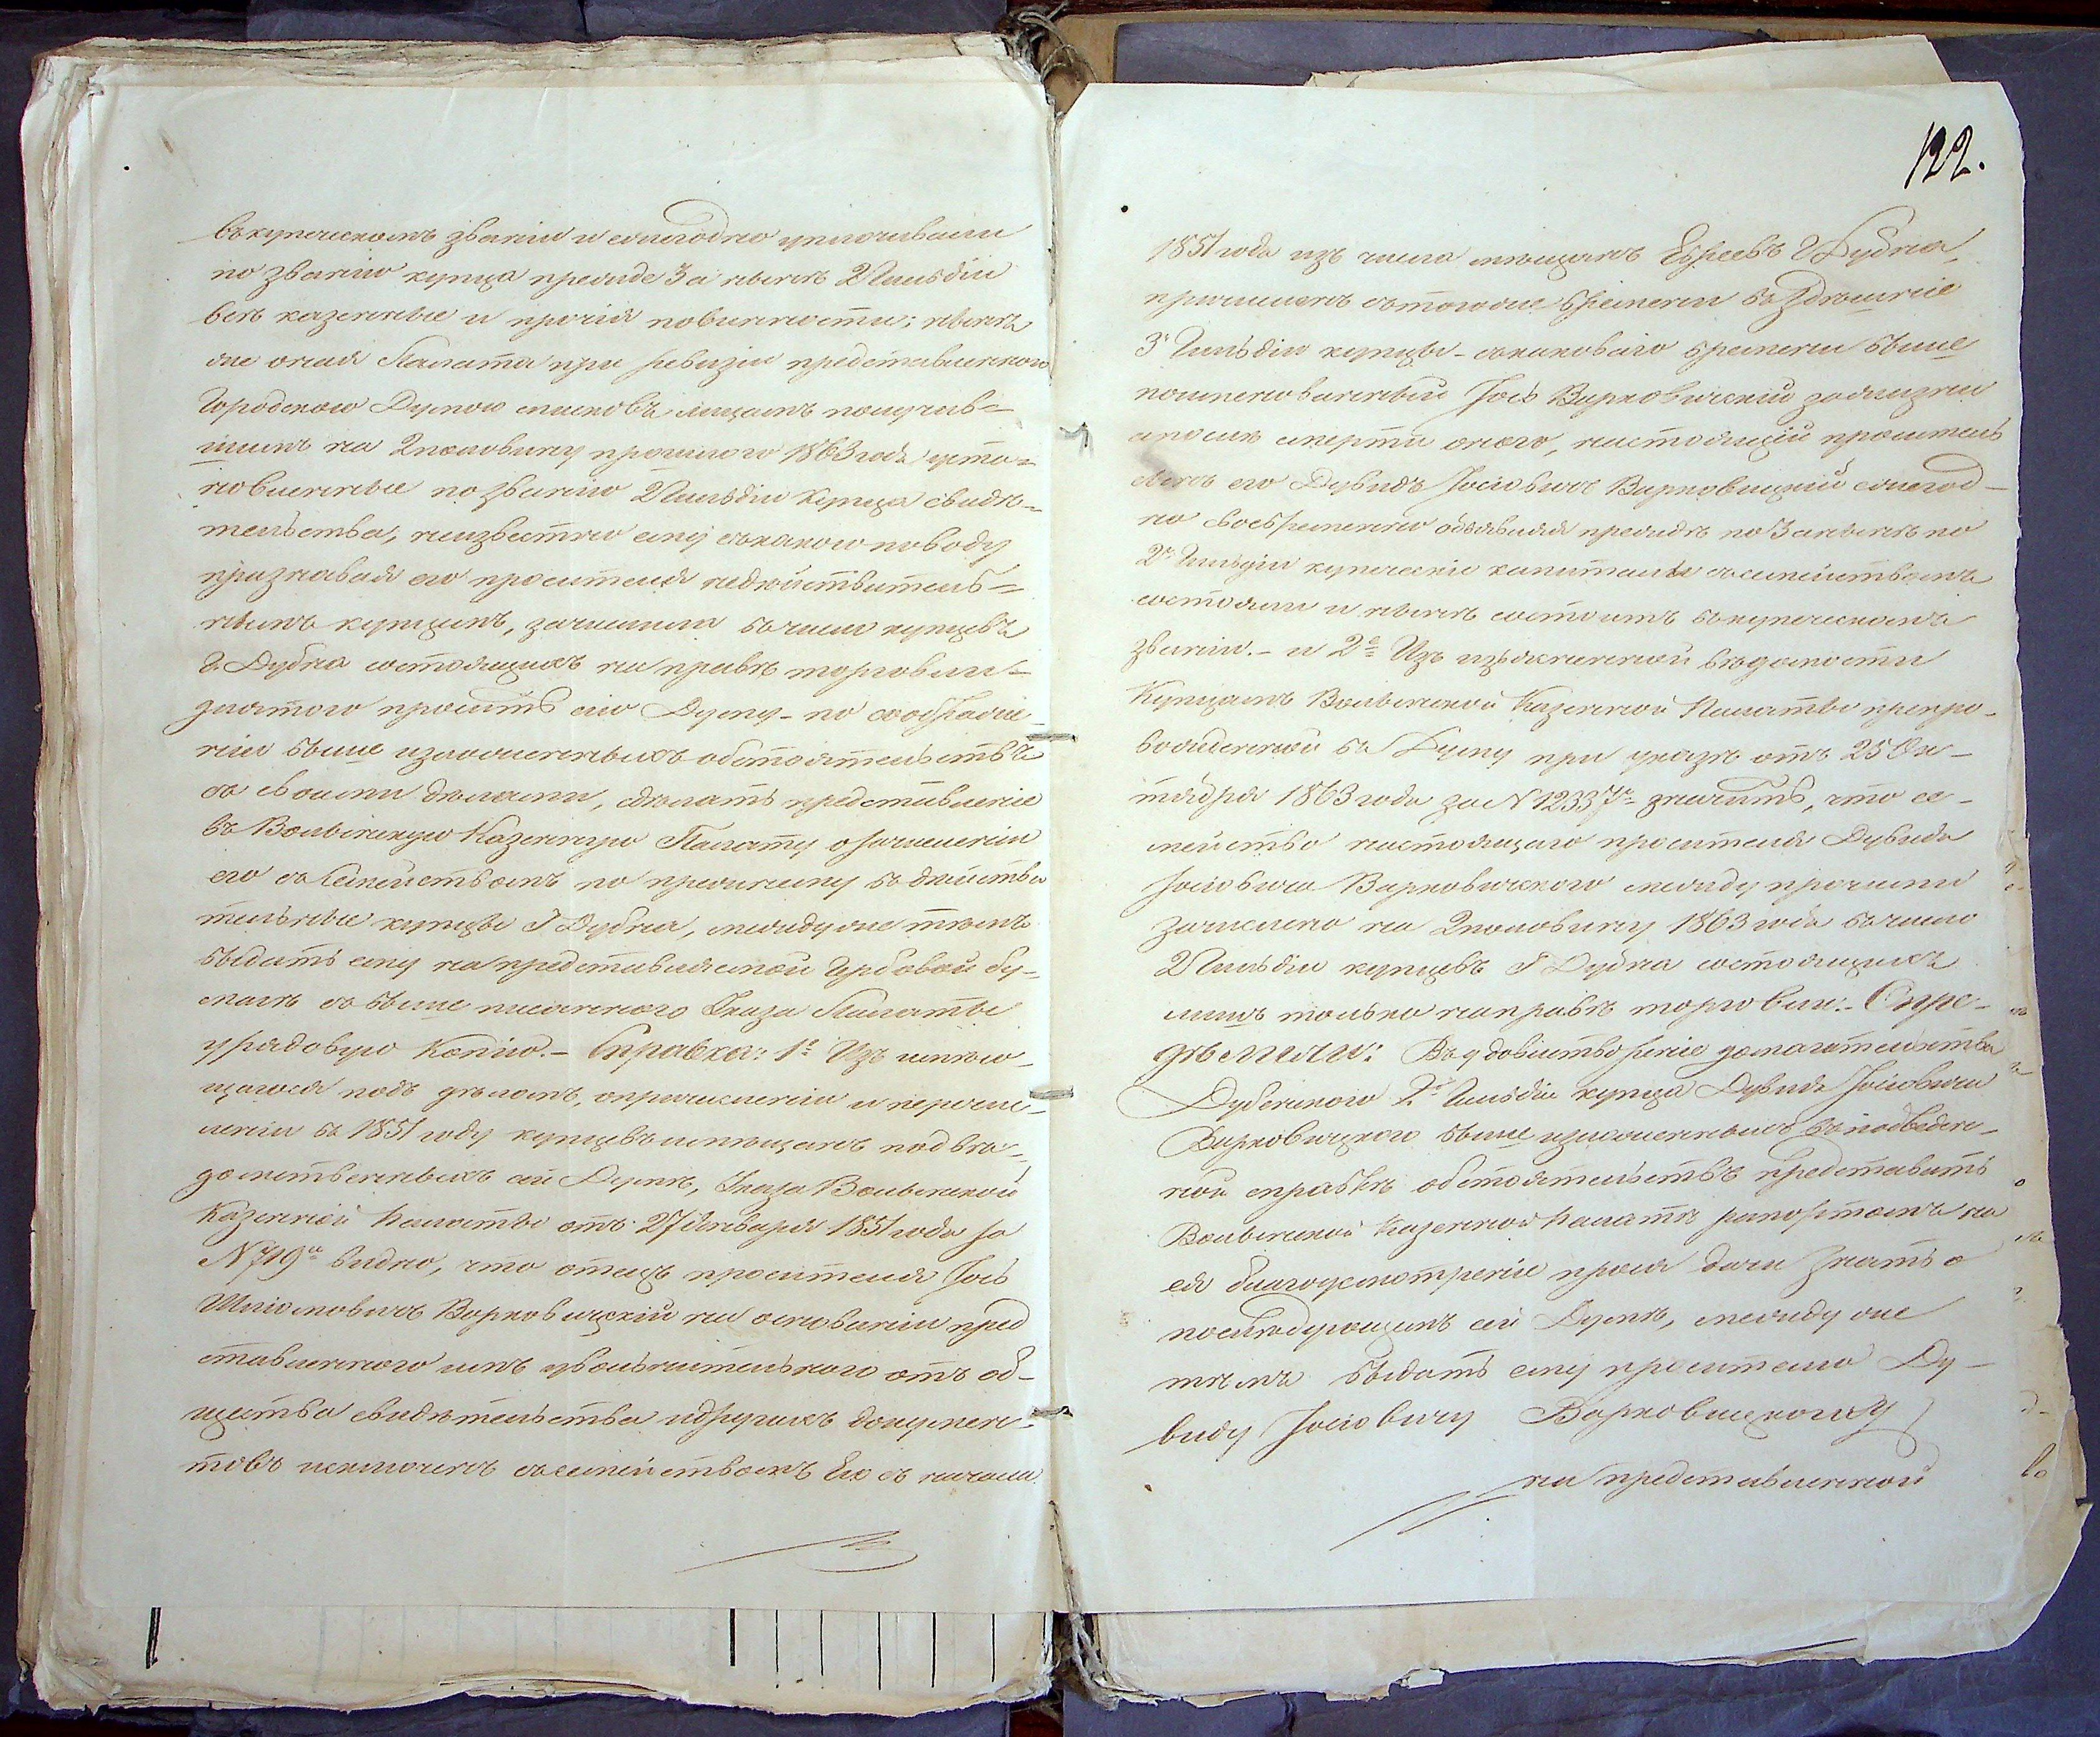 въ купеческомъ званіи и ежегодно уплочивали
по званію купца прежде 3 а нынѣ 2 Гильдіи
всѣ казенные и прочія повинности; нынѣ
же оная Палата при ревизіи представленного
Городскою Думою списковъ лицамъ получив=
шимъ на 2 половину прошлого 1863 года уста=
новленные по званію 2 Гильдіи Купца свидѣ=
тельства, неизвѣстно ему съ какого поводу
признавая его просителя недѣйствитель=
нымъ купцемъ, зачислили въ число купцевъ
г. Дубна состоящихъ на правѣ торговли=
для того проситъ сію Думу - по соображе-
ніи выше изложенныхъ обстоятельствъ
съ своими дѣлами, сдѣлать представленіе
въ Волынскую Казенную Палату о зачисленіи
его съ Семействомъ по прежнему въ дѣйстви
тельные купцы г Дубна, между же тѣмъ
выдать ему на представляемой Гербовой бу-
магѣ съ выше писанного Указа Палаты
урядовую Копію. - Справка: 1е Изъ имѣю-
щагося подъ дѣломъ, о причисленіи и перечис-
леніи въ 1851 году купцевъ и мѣщанъ подвѣ-
домственныхъ сей Думѣ, Указа Волынской
Казенной Палаты отъ 27 Января 1851 года за
N 719м видно, что отецъ просителя Іось
Шліомовичъ Варковицкій на основаніи пред
ставленного имъ увольнительного отъ об-
щества свидѣтельства и другихъ докумен-
товъ исключенъ съ семействомъ Его съ начала
122.
1851 года изъ числа мѣщанъ Евреевъ г Дубна,
причисленъ съ того же времени въ Здѣшніе
3й Гильдіи купцы - съ каковаго времени выше
поименованный Іось Варковицкій за жизни
а послѣ смерти оного, настоящій проситель
сынъ его Дувидъ Іосіовичъ Варковицкій ежегод-
но своевременно объявляя прежде по 3 а нынѣ по
2й Гильдіи купеческіе капиталы съ семействомъ
состояли и нынѣ состоитъ въ купеческомъ
званіи. - и 2е Изъ изъясненной вѣдомости
Купцамъ Волынской Казенной Палаты препро-
вожденной въ Думу при указѣ отъ 25 Ок-
тября 1863 года за N 12337м значитъ, что се-
мейство настоящаго просителя Дувида
Іосіовича Варковицкого между прочими
зачислено на 2 половину 1863 года въ число
2 Гильдіи купцевъ г Дубна состоящихъ
лишь только на правѣ торговли. - Опре-
дѣлили: Въ удовлетвореніе домогательства
Дубенского 2й Гильдіи купца Дувида Іосіовича
Варковицкого выше изложенныхъ въ подведен-
ной справкѣ обстоятельствъ представить
Волынской Казенной Палатѣ рапортомъ на
ея благоусмотреніе прося дачи знать о
послѣдующемъ сей Думѣ, между же
тѣмъ выдать ему просителю Ду-
виду Іосіовичу Варковицкому
на представленной